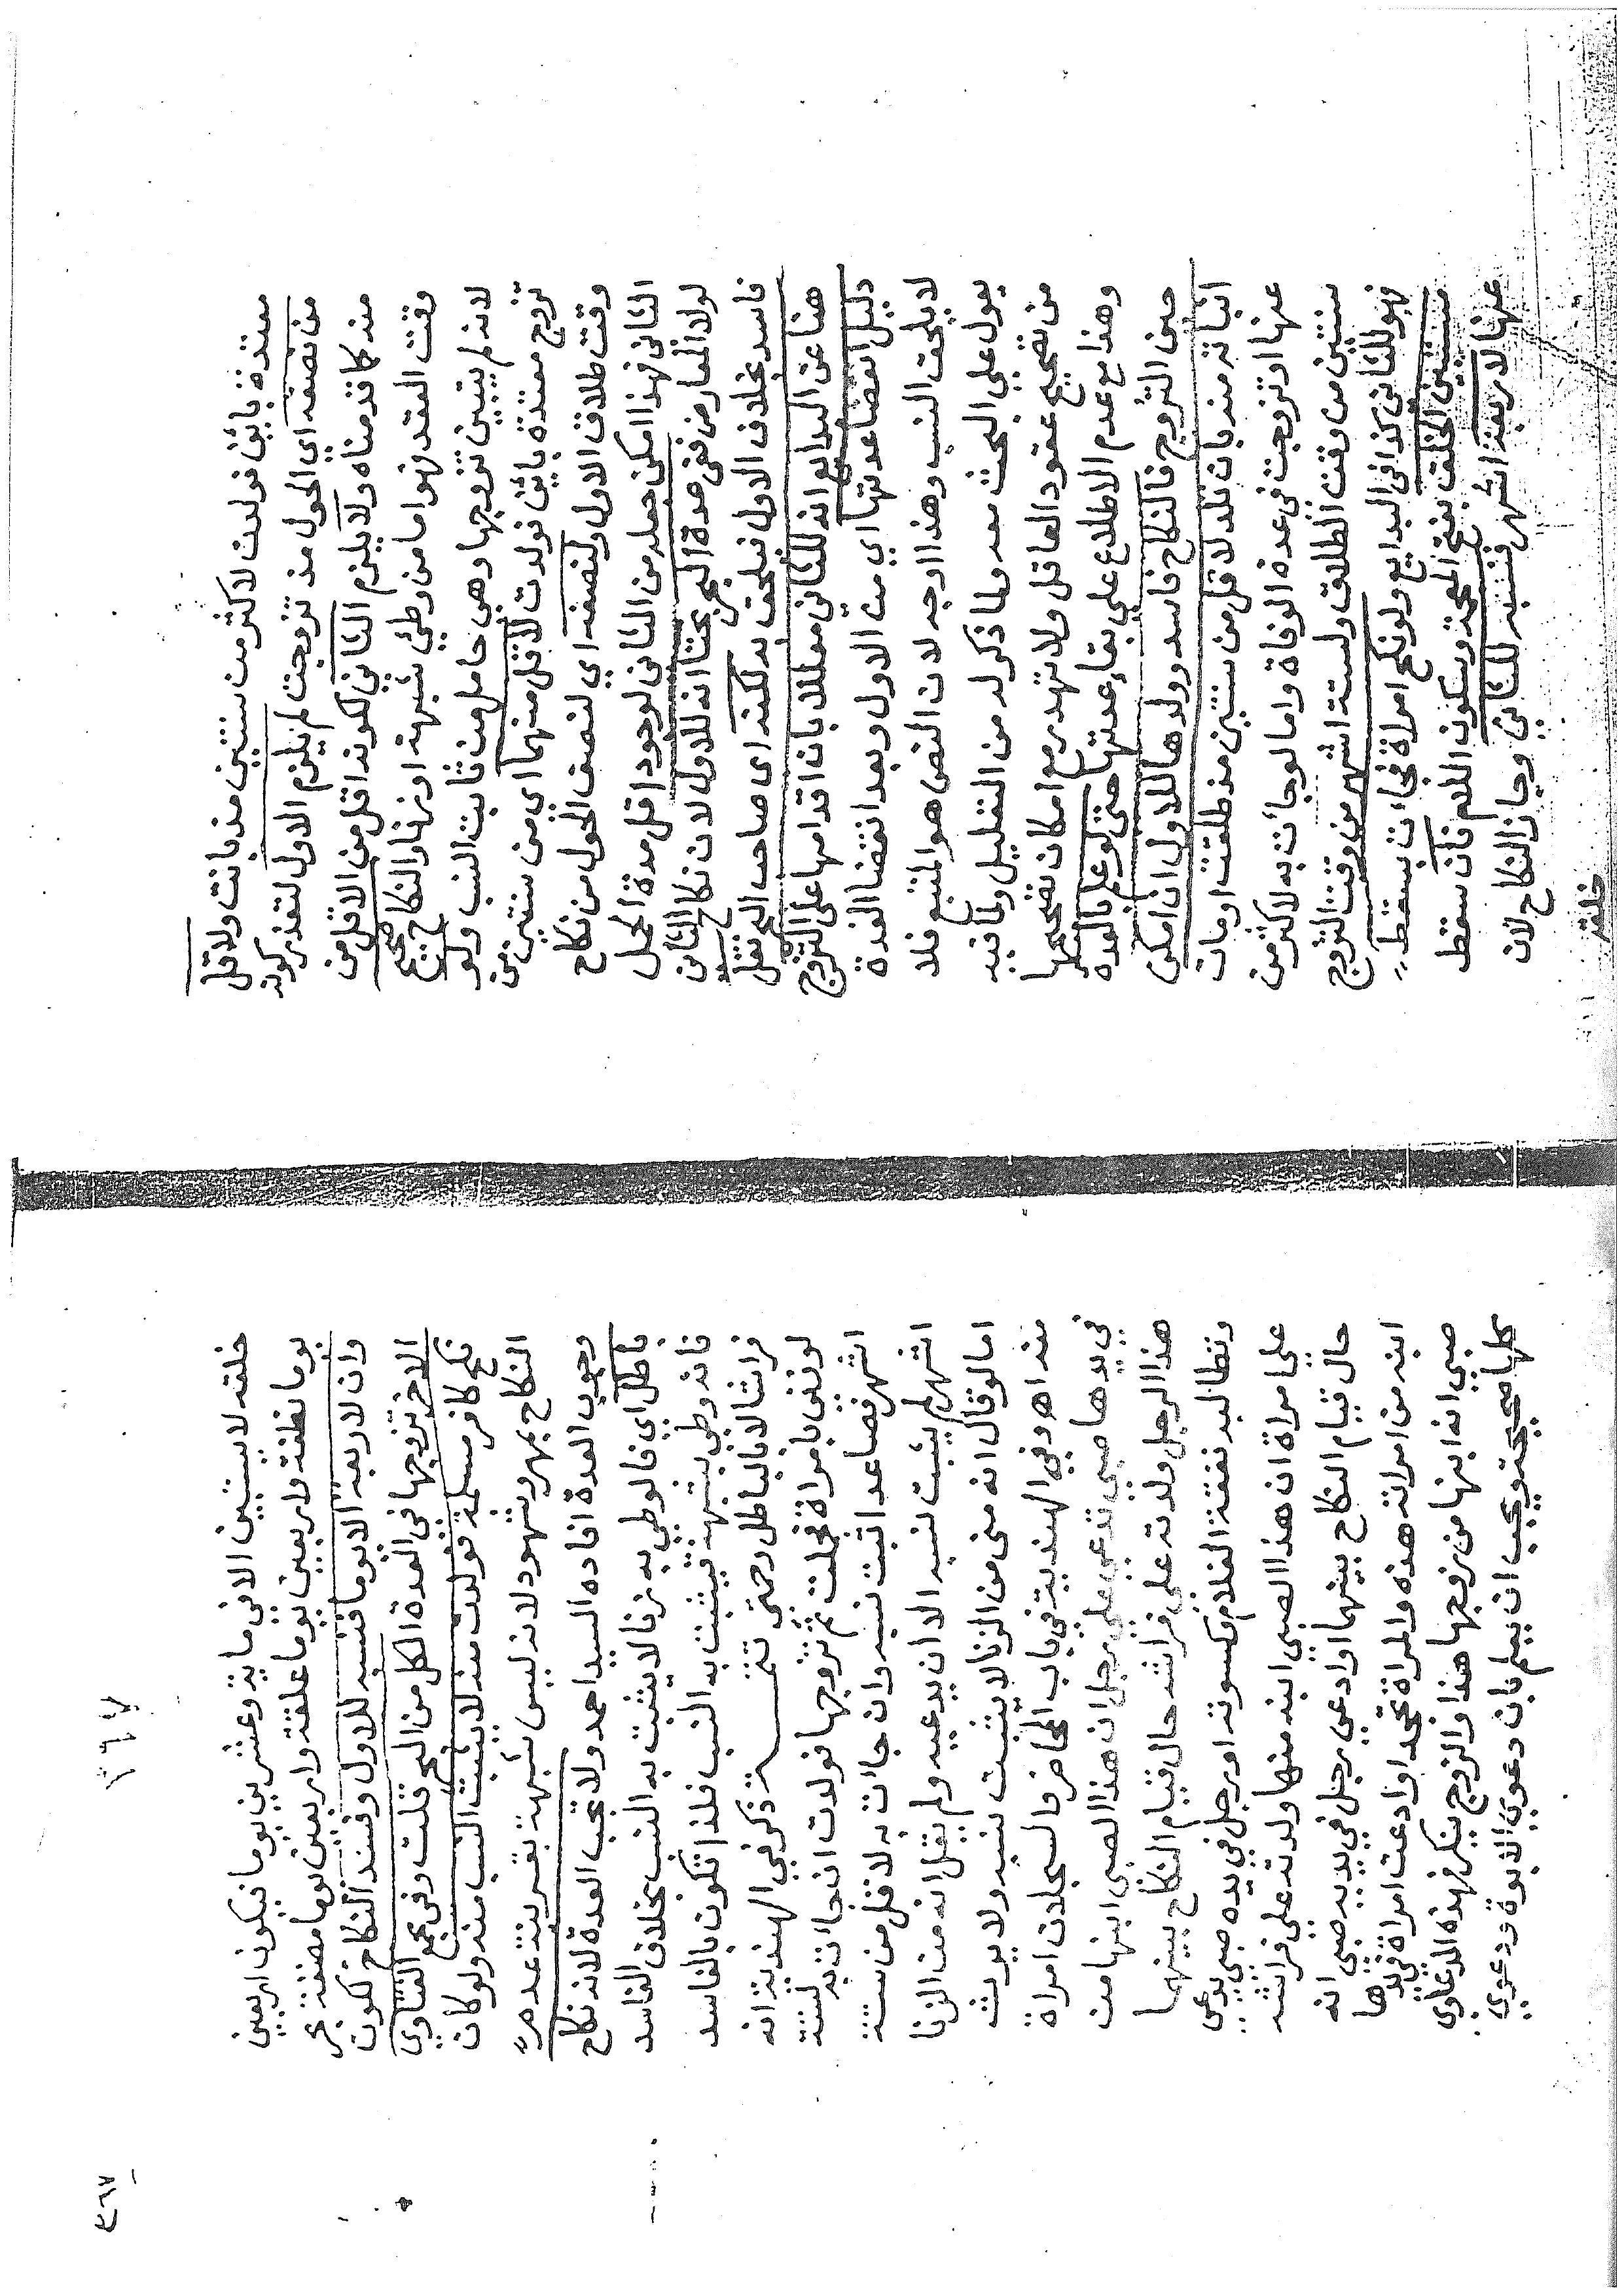 معتدة بائن فولدت لاكثر من سنتين مذ بانت ولاقل
من نصفه اي الحول مذ تزوجت لم يلزم الاول لتعذر كونه
منه كما قدمناه ولا يلزم الثاني لكونه اقل من الاقل من
وقت العقد فهو اما من وطئ شبهة او زنا والنكاح صحيح
لانه لم يتبين تزوجها وهي حامل من ثابت النسب ولو نكح
تزوج معتدة بائن فولدت لاقل منهما اي من سنتين من
وقت طلاق الاول ولنصفه اي لنصف الحول من نكاح
الثاني فهذا امكن حمله من الثاني لوجود اقل مدة الحمل
لولا المعارض ففي عدة البحر بحثا انه للاول لان نكاح الثاني
فاسد بخلاف الاول فيلحق به لكنه اي صاحب البحر نقل
هنا عن البدايع انه للثاني معللا بان اقدامها على التزوج
دليل انقضاء عدتها اي من الاول وبعد انقضا العدة
لا يلحق النسب وهذا اوجه لان النص هو المتبع فلا
يعول على البحث معه ولما ذكر له من التعليل ولما فيه
من تصحيح عقود العاقل ولا تهدر مع امكان تصحيحها
وهذا مع عدم الاطلاع على بقاء عدتها حتى لو علم بالعدة
حين التزوج فالنكاح فاسد وولدها للاول ان امكن
اثباته منه بان تلد لاقل من سنتين مذ طلقت او مات
عنها او تزوجت في عدة الوفاة واما لو جأت به لاكثر من
سنتين من وقت الطلاق ولستة اشهر من وقت التزوج
فهو للثاني كذا في البدايع ولو نكح امراة فجأت بسقط
مستبين الخلق بفتح المعجمة وسكون اللام فان سقط
عنها لاربعة اشهر فنسبه للثاني وجاز النكاح لان
خلقه
٣٦٧
خلقه لا يستبين الا في ماية وعشرين يوما فيكون اربعين
يوما نطفة واربعين يوما علقة واربعين يوما مضغة بحر
وان لاربعة الا يوما فنسبه للاول وفسد النكاح لكون
الاخر تزوجها في العدة الكل من البحر قلت وفي مجمع الفتاوي
نكح كافر مسلمة فولدت منه لا يثبت النسب منه ولو كان
النكاح بمهر وشهود لانه ليس شبهة بقرينة عدم
وجوب العدة افاده السيد احمد ولا تجب العدة لانه نكاح
باطل اي فالوطي به زنا لا يثبت به النسب بخلاف الفاسد
فانه وطي بشبهة فيثبت به النسب فلذا تكون بالفاسد
فراشا لا بالباطل رحمتي تتمـة ذكر في الهندية انه
لو زنى بامراة فحملت ثم تزوجها فولدت ان جاات به لستة
اشهر فصاعدا اثبت نسبه وان جاات به لاقل من ستة
اشهر لم يثبت نسبه الا ان يدعيه ولم يقل انه من الزنا
اما لو قال انه منى من الزنا لا يثبت نسبه ولا يورث
منه اهـ وفي الهندية في باب المحاضر والسجلات امراة
في يدها صبي تدعي على رجل ان هذا الصبي ابنها من
هذا الرجل ولدته على فراشه حال قيام النكاح بينهما
وتطالبه نفقة الغلام وكسوته او رجل في يده صبي يدعي
على امراة ان هذا الصبي ابنه منها ولدته على فراشه
حال قيام النكاح بينهما او ادعى رجل في يديه صبي انه
ابنه من امراته هذه والمراة تجحد او ادعت امراة في يدها
صبي انه ابنها من زوجها هذا والزوج ينكر فهذه الدعاوي
كلها صحيحة ويجب ان يعلم بان دعوي الابوة ودعوي
٣٦٧